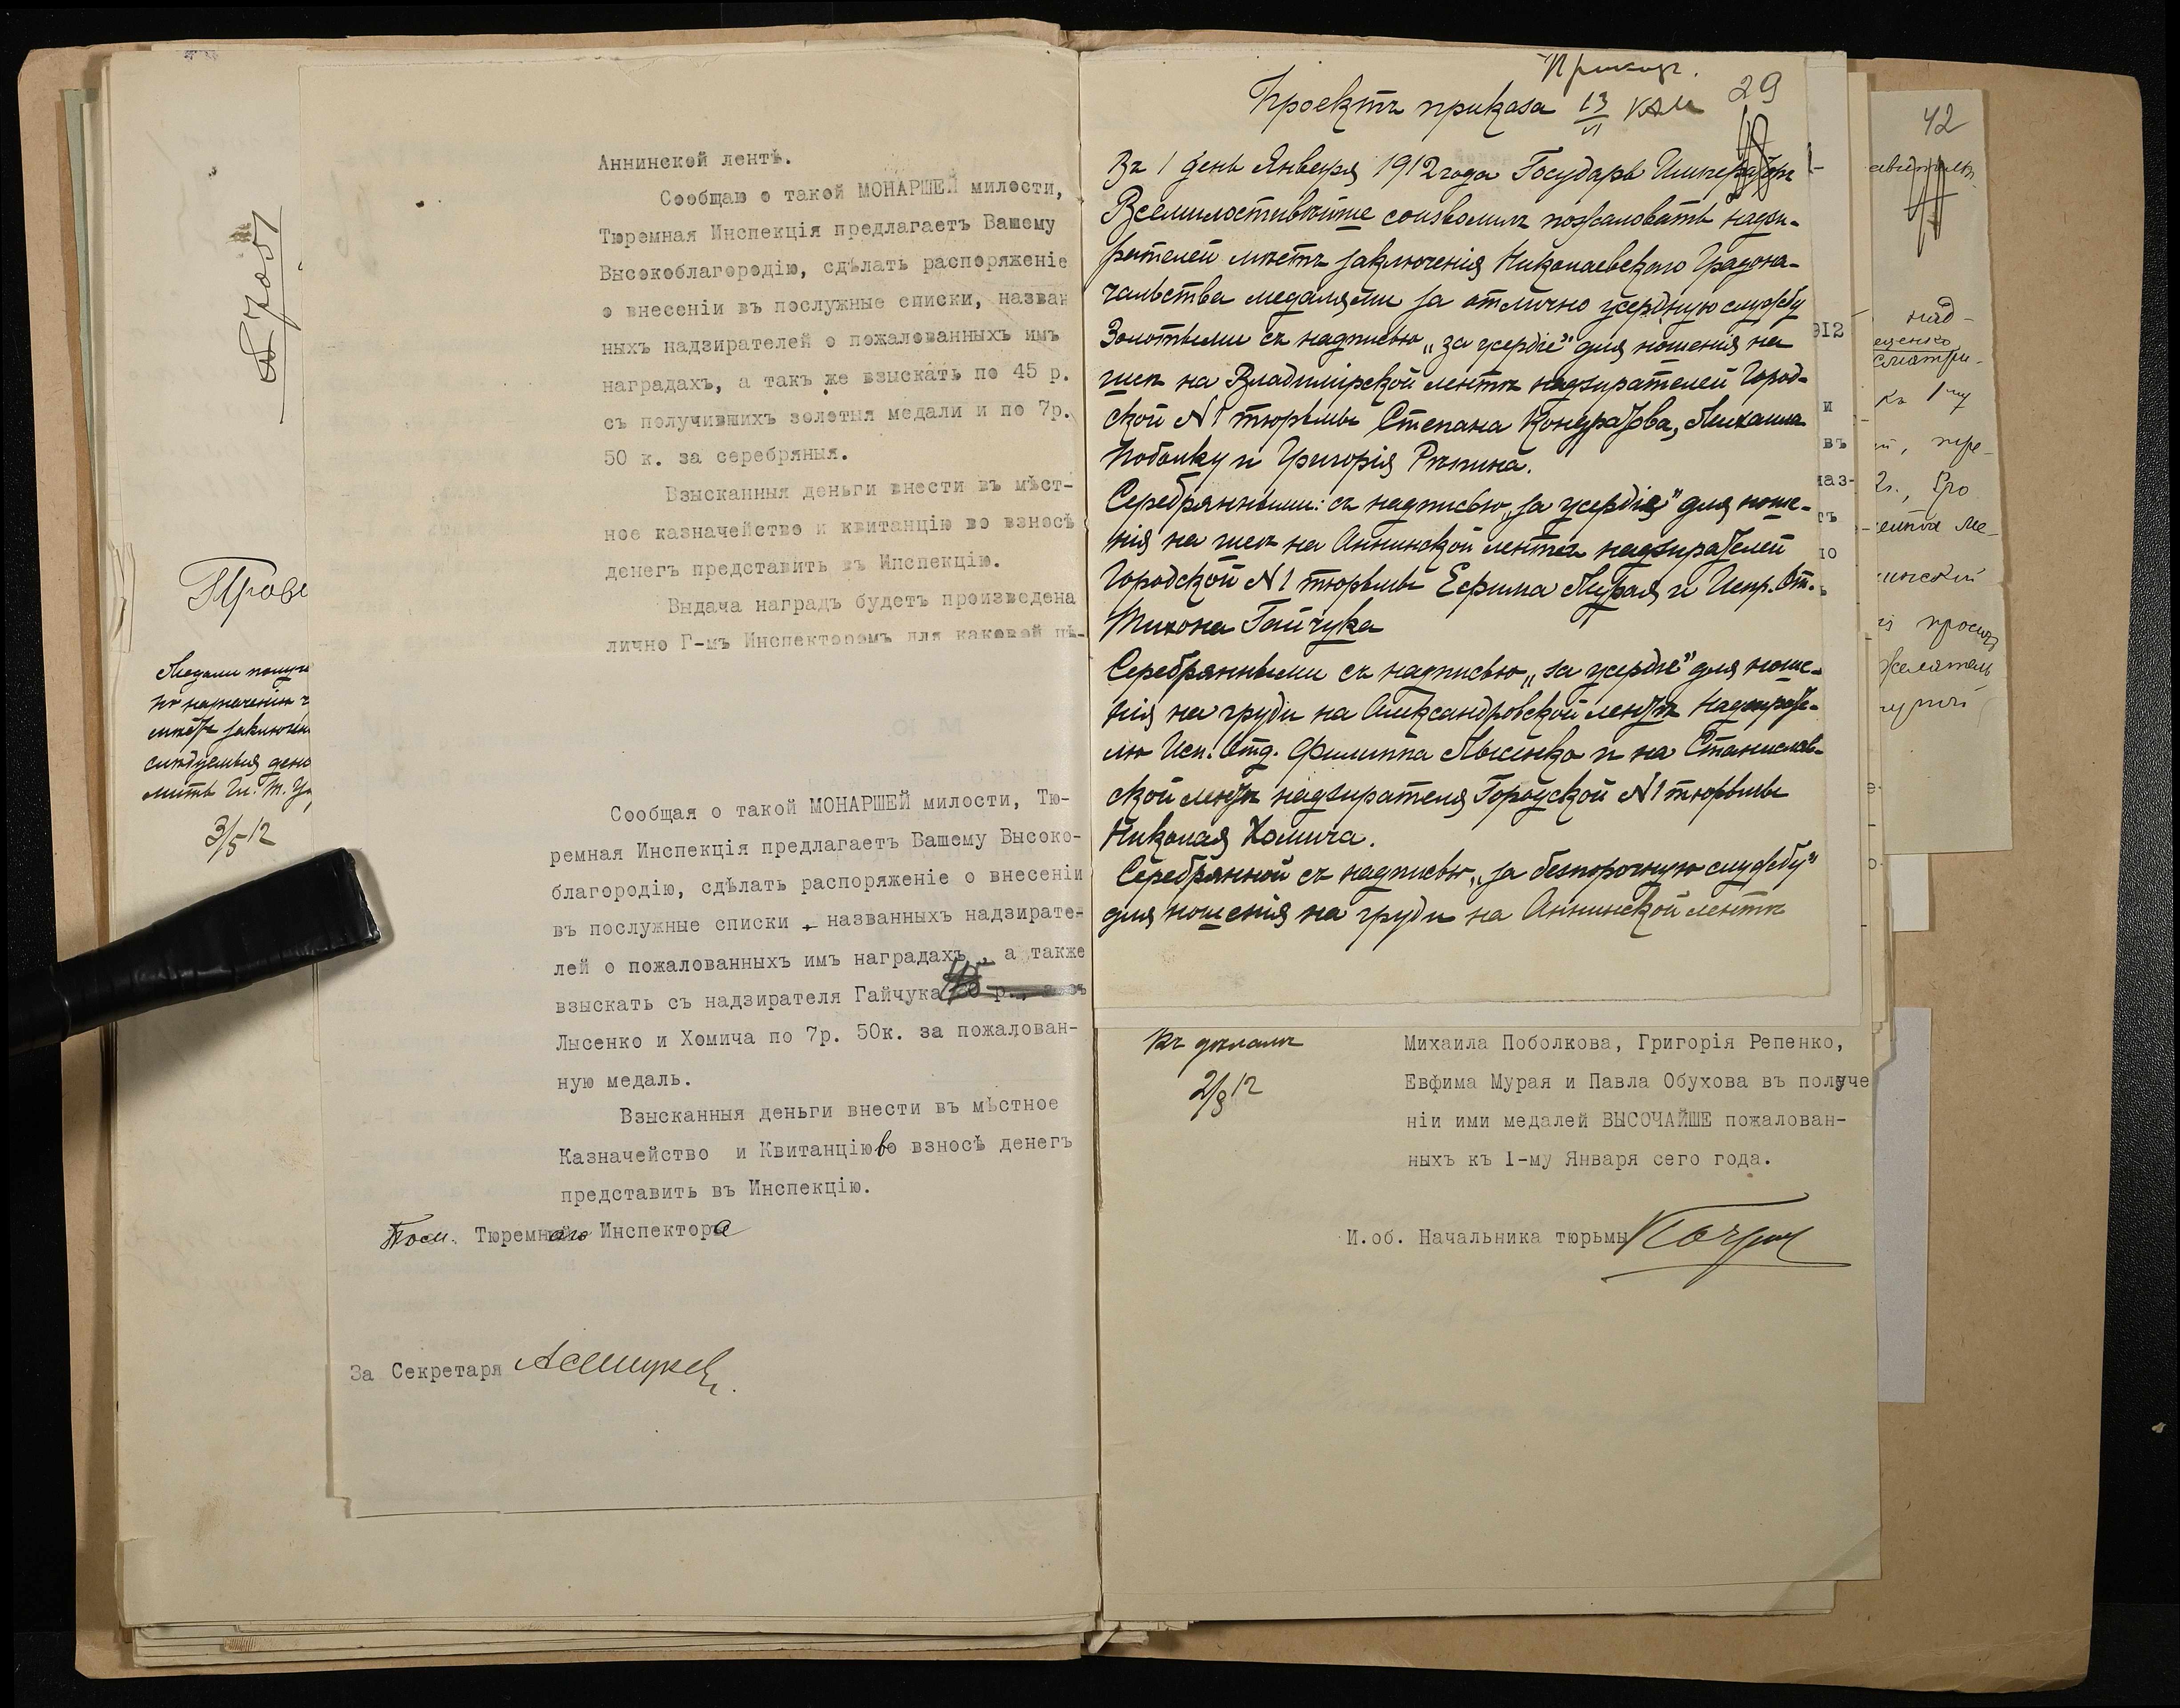 Аннинской лентѣ.
Сообщаю о такой МОНАРШЕЙ милости,
Тюремная Инспекція предлагаетъ Вашему
Высокоблагородію, сдѣлать распоряженіе
о внесеніи въ послужные списки, назван
ныхъ надзирателей о пожалованныхъ имъ
наградахъ, а такъ же взыскать по 45 р.
съ получившихъ золотыя медали и по 7р.
50 к. за серебряныя.
Взысканныя деньги внести въ мѣст-
ное казначейство и квитанцію во взносѣ
денегъ представить въ Инспекцію.
Выдача наградъ будетъ произведена
лично Г-мъ Инспекторомъ для каковой цѣ-
Прове
Медали получ
по назначенію
мѣстъ заключен
слѣдуемыя день
3/5 12
Сообщая о такой МОНАРШЕЙ милости, Тю-
ремная Инспекція предлагаетъ Вашему Высоко-
благородію, сдѣлать распоряженіе о внесеніи
въ послужные списки , названныхъ надзирате-
лей о пожалованныхъ имъ наградахъ , а также
взыскать съ надзирателя Гайчука 45
Лысенко и Хомича по 7р. 50к. за пожалован-
ную медаль.
Взысканныя деньги внести въ мѣстное
Казначейство и Квитанцію во взносѣ денегъ
представить въ Инспекцію.
Пом. Тюремнаго Инспектора
За Секретаря
29
Проектъ приказа 13/VI
Въ 1 день Января 1912 года Государь Императоръ
Всемилостивѣйше соизволилъ пожаловать надзи-
рателей мѣстъ заключенія Николаевскаго Градона-
чальства медалями за отлично усердную службу
Золотыми съ надписью „за усердіе" для ношенія на
шеѣ на Владимірской лентѣ надзирателей Город-
ской №1 тюрьмы Степана Кондратова, Михаила
Поболку и Григорія Рѣпина.
Серебрянными: съ надписью „за усердіе" для ноше-
нія на шеѣ на Аннинской лентѣ надзирателей
Городской №1 тюрьмы Ефима Мурая и Испр. От.
Тихона Гайчука
Серебрянными съ надписью „за усердіе" для ноше-
нія на груди на Александровской лентѣ надзирате-
лю Исп. Отд. Филиппа Лысенко и на Станислав-
ской лентѣ надзирателя Городской №1 тюрьмы
Николая Хомича.
Серебрянной съ надписью „за безпорочную службу"
для ношенія на груди на Аннинской лентѣ
Къ дѣламъ
2/8 12
Михаила Поболкова, Григорія Репенко,
Евфима Мурая и Павла Обухова въ получе
ніи ими медалей ВЫСОЧАЙШЕ пожалован-
ныхъ къ 1-му Января сего года.
И.об. Начальника тюрьмы
912
и
въ
наз-
42
над-
смотри-
къ 1му
пре-
Про
ме-
просит
желатель